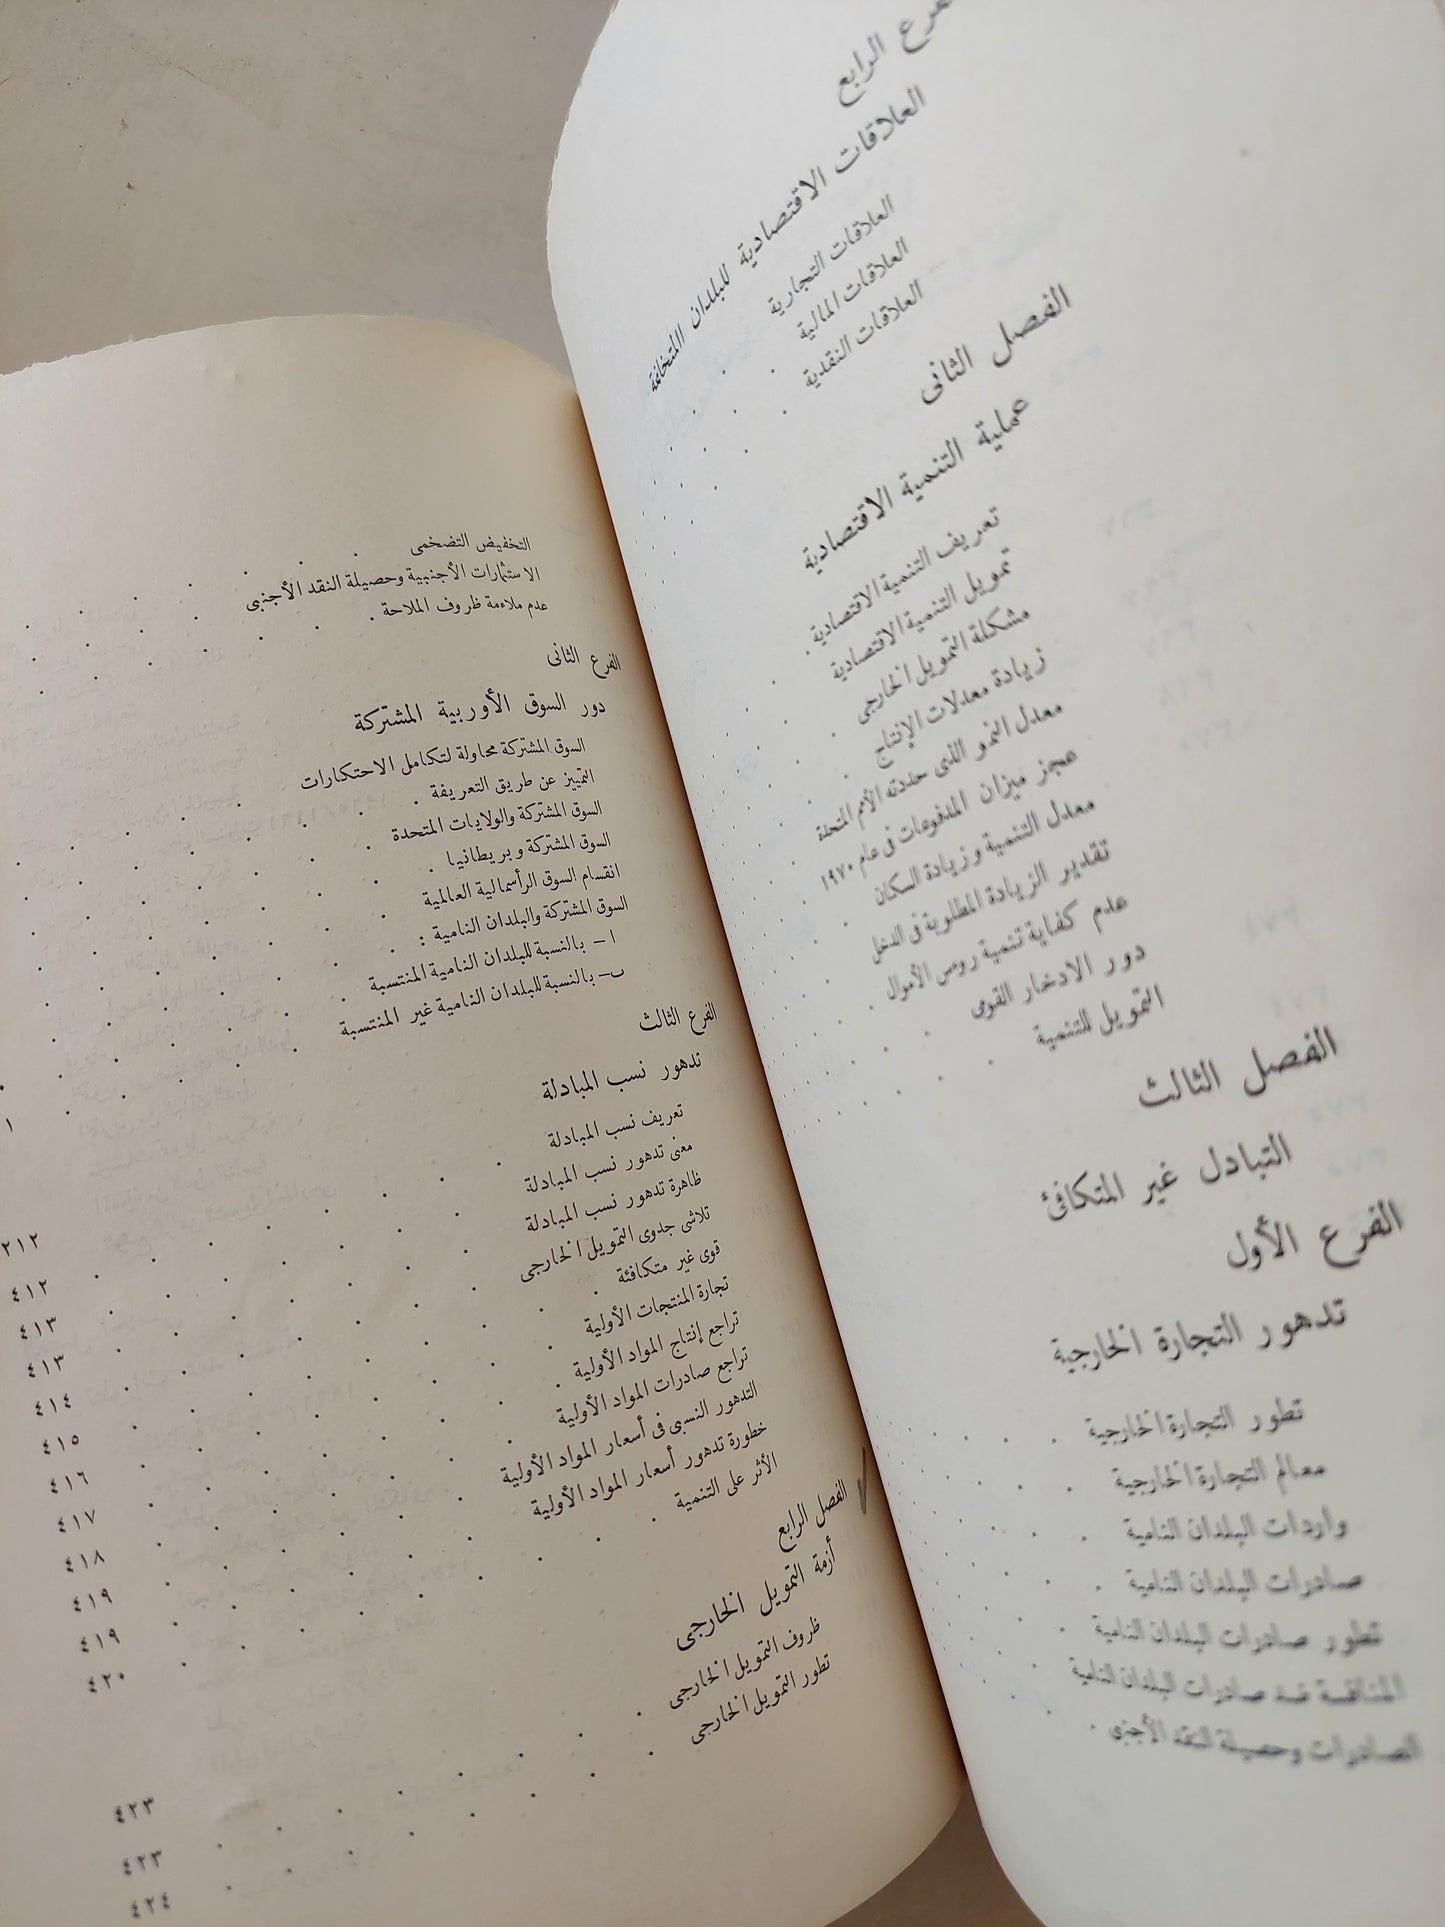 الرابع
العلاقات الاقتصادية للبلدان المتخلفة
العلاقات التجارية
العلاقات المالية
العلاقات النقدية
الفصل الثانى
عملية التنمية الاقتصادية
تعريف التنمية الاقتصادية
تمويل التنمية الاقتصادية
مشكلة التمويل الخارجى
زيادة معدلات الإنتاج
معدل النمو الذى حددته الأمم المتحدة
عجز ميزان المدفوعات فى عام ١٩٧٠
معدل التنمية وزيادة السكان
تقدير الزيادة المطلوبة فى الدخل
عدم كفاية تنمية رءوس الأموال
دور الادخار القومى
التمويل للتنمية
الفصل الثالث
التبادل غير المتكافئ
الفرع الأول
تدهور التجارة الخارجية
تطور التجارة الخارجية
معالم التجارة الخارجية
واردات البلدان النامية
صادرات البلدان النامية
تطور صادرات البلدان النامية
المنافسة ضد صادرات البلدان النامية
الصادرات وحصيلة النقد الأجنبى
التخفيض التضخمى
الاستثمارات الأجنبية وحصيلة النقد الأجنبى
عدم ملاءمة ظروف الملاحة
الفرع الثانى
دور السوق الأوربية المشتركة
السوق المشتركة محاولة لتكامل الاحتكارات
التمييز عن طريق التعريفة
السوق المشتركة والولايات المتحدة
السوق المشتركة وبريطانيا
انقسام السوق الرأسمالية العالمية
السوق المشتركة والبلدان النامية :
ا – بالنسبة للبلدان النامية المنتسبة
ب – بالنسبة للبلدان النامية غير المنتسبة
الفرع الثالث
تدهور نسب المبادلة
تعريف نسب المبادلة ٢١٢
معنى تدهور نسب المبادلة ٤١٢
ظاهرة تدهور نسب المبادلة ٤١٣
تلاشى جدوى التمويل الخارجى ٤١٣
قوى غير متكافئة ٤١٤
تجارة المنتجات الأولية ٤١٥
تراجع إنتاج المواد الأولية ٤١٦
تراجع صادرات المواد الأولية ٤١٧
التدهور النسبى فى أسعار المواد الأولية ٤١٨
خطورة تدهور أسعار المواد الأولية ٤١٩
الأثر على التنمية ٤١٩
٤٢٠
الفصل الرابع
أزمة التمويل الخارجى ٤٢٣
ظروف التمويل الخارجى ٤٢٣
تطور التمويل الخارجى ٤٢٤